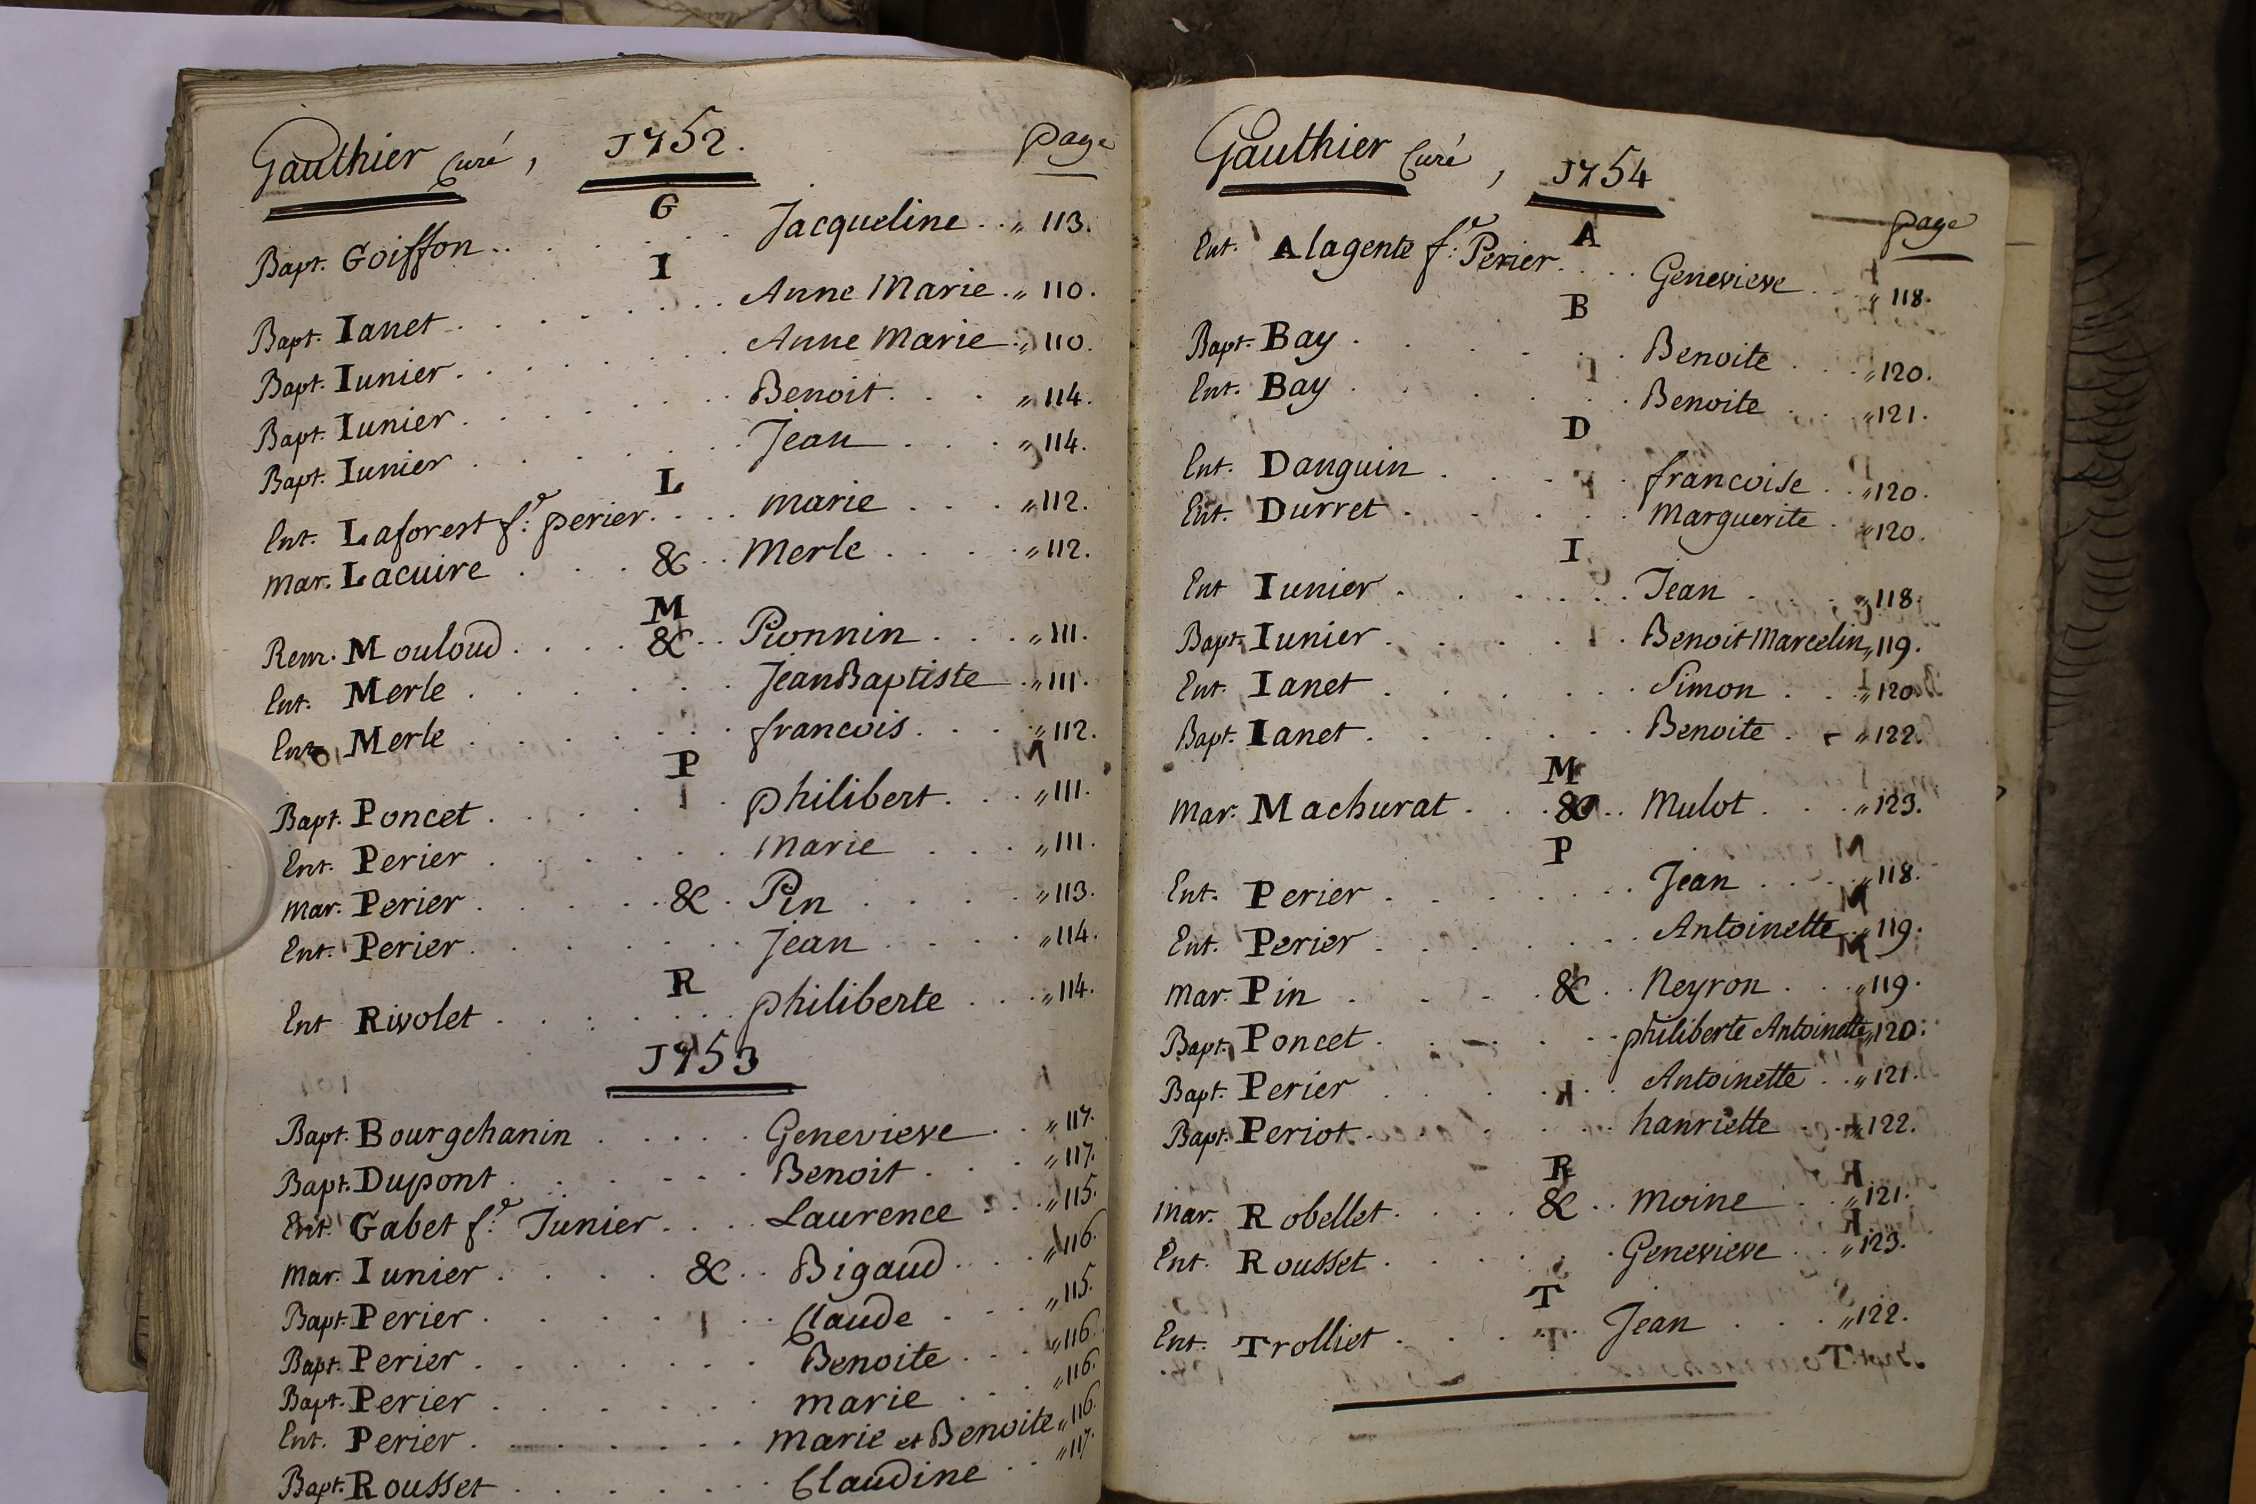 Gauthier Curé, 1752. page
G
Bapt. Goiffon . . . . . . Jacqueline . . „ 113.
I
Bapt. Ianet . . . . . . Anne Marie . „ 110.
Bapt. Iunier . . . . . . Anne Marie . „ 110.
Bapt. Iunier . . . . . . Benoit . . . „ 114.
Bapt. Iunier . . . . . . Jean . . . „ 114.
L
Ent. Laforest f.e perier . . . . marie . . . „ 112.
Mar. Lacuire . . . & . . Merle . . . . „ 112.
M
Rem. Mouloud . . . . & . . Pionnin . . . „ 111.
Ent. Merle . . . . . . Jean Baptiste . „ 111.
Ent. Merle . . . . . . francois . . . „ 112.
P
Bapt. Poncet . . . . . philibert . . . „ 111.
Ent. Perier . . . . . . Marie . . . „ 111.
Mar. Perier . . . . & . Pin . . . . „ 113.
Ent. Perier . . . . . . Jean . . . . „ 114.
R
Ent Rivolet . . . . . . philiberte . . . „ 114.
1753
Bapt. Bourgchanin . . . . . Genevieve . . „ 117.
Bapt. Dupont . . . . . . Benoit . . . „ 117.
Ent. Gabet f.e Junier . . . . Laurence . . . „ 115.
Mar. Iunier . . . . & . . Bigaud . . . . „ 116.
Bapt. Perier . . . . . . Claude . . . „ 115.
Bapt. Perier . . . . . . Benoite . . . „ 116.
Bapt. Perier . . . . . . marie . . . „ 116.
Ent. Perier . . . . . . marie et Benoite „ 116.
Bapt. Rousset . . . . . . Claudine . . „ 117.
Gauthier Curé, 1754 page
A
Ent. Alagente f.e Perier . . . . Genevieve . . „ 118.
B
Bapt. Bay . . . . . . Benoite . . . „ 120.
Ent. Bay . . . . . . Benoite . . . „ 121.
D
Ent. Danguin . . . . francoise . . „ 120.
Ent. Durret . . . . . Marguerite . „ 120.
I
Ent Iunier . . . . . . Jean . . . „ 118.
Bapt. Iunier . . . . . Benoit Marcelin „ 119.
Ent. Ianet . . . . . . Simon . . . „ 120.
Bapt. Ianet . . . . . . Benoite . . „ 122.
M
Mar. Machurat . . . & . . Mulot . . . . „ 123.
P
Ent. Perier . . . . . . Jean . . . . „ 118.
Ent. Perier . . . . . . Antoinette . „ 119.
Mar. Pin . . . . & . . Neyron . . . „ 119.
Bapt. Poncet . . . . . . philiberte Antoinette „ 120.
Bapt. Perier . . . . . Antoinette . . „ 121.
Bapt. Periot . . . . . hanriette . . . „ 122.
R
Mar. Robellet . . . . & . . Moine . . . „ 121.
Ent. Rousset . . . . . Genevieve . . „ 123.
T
Ent. Trolliet . . . . . Jean . . . . „ 122.